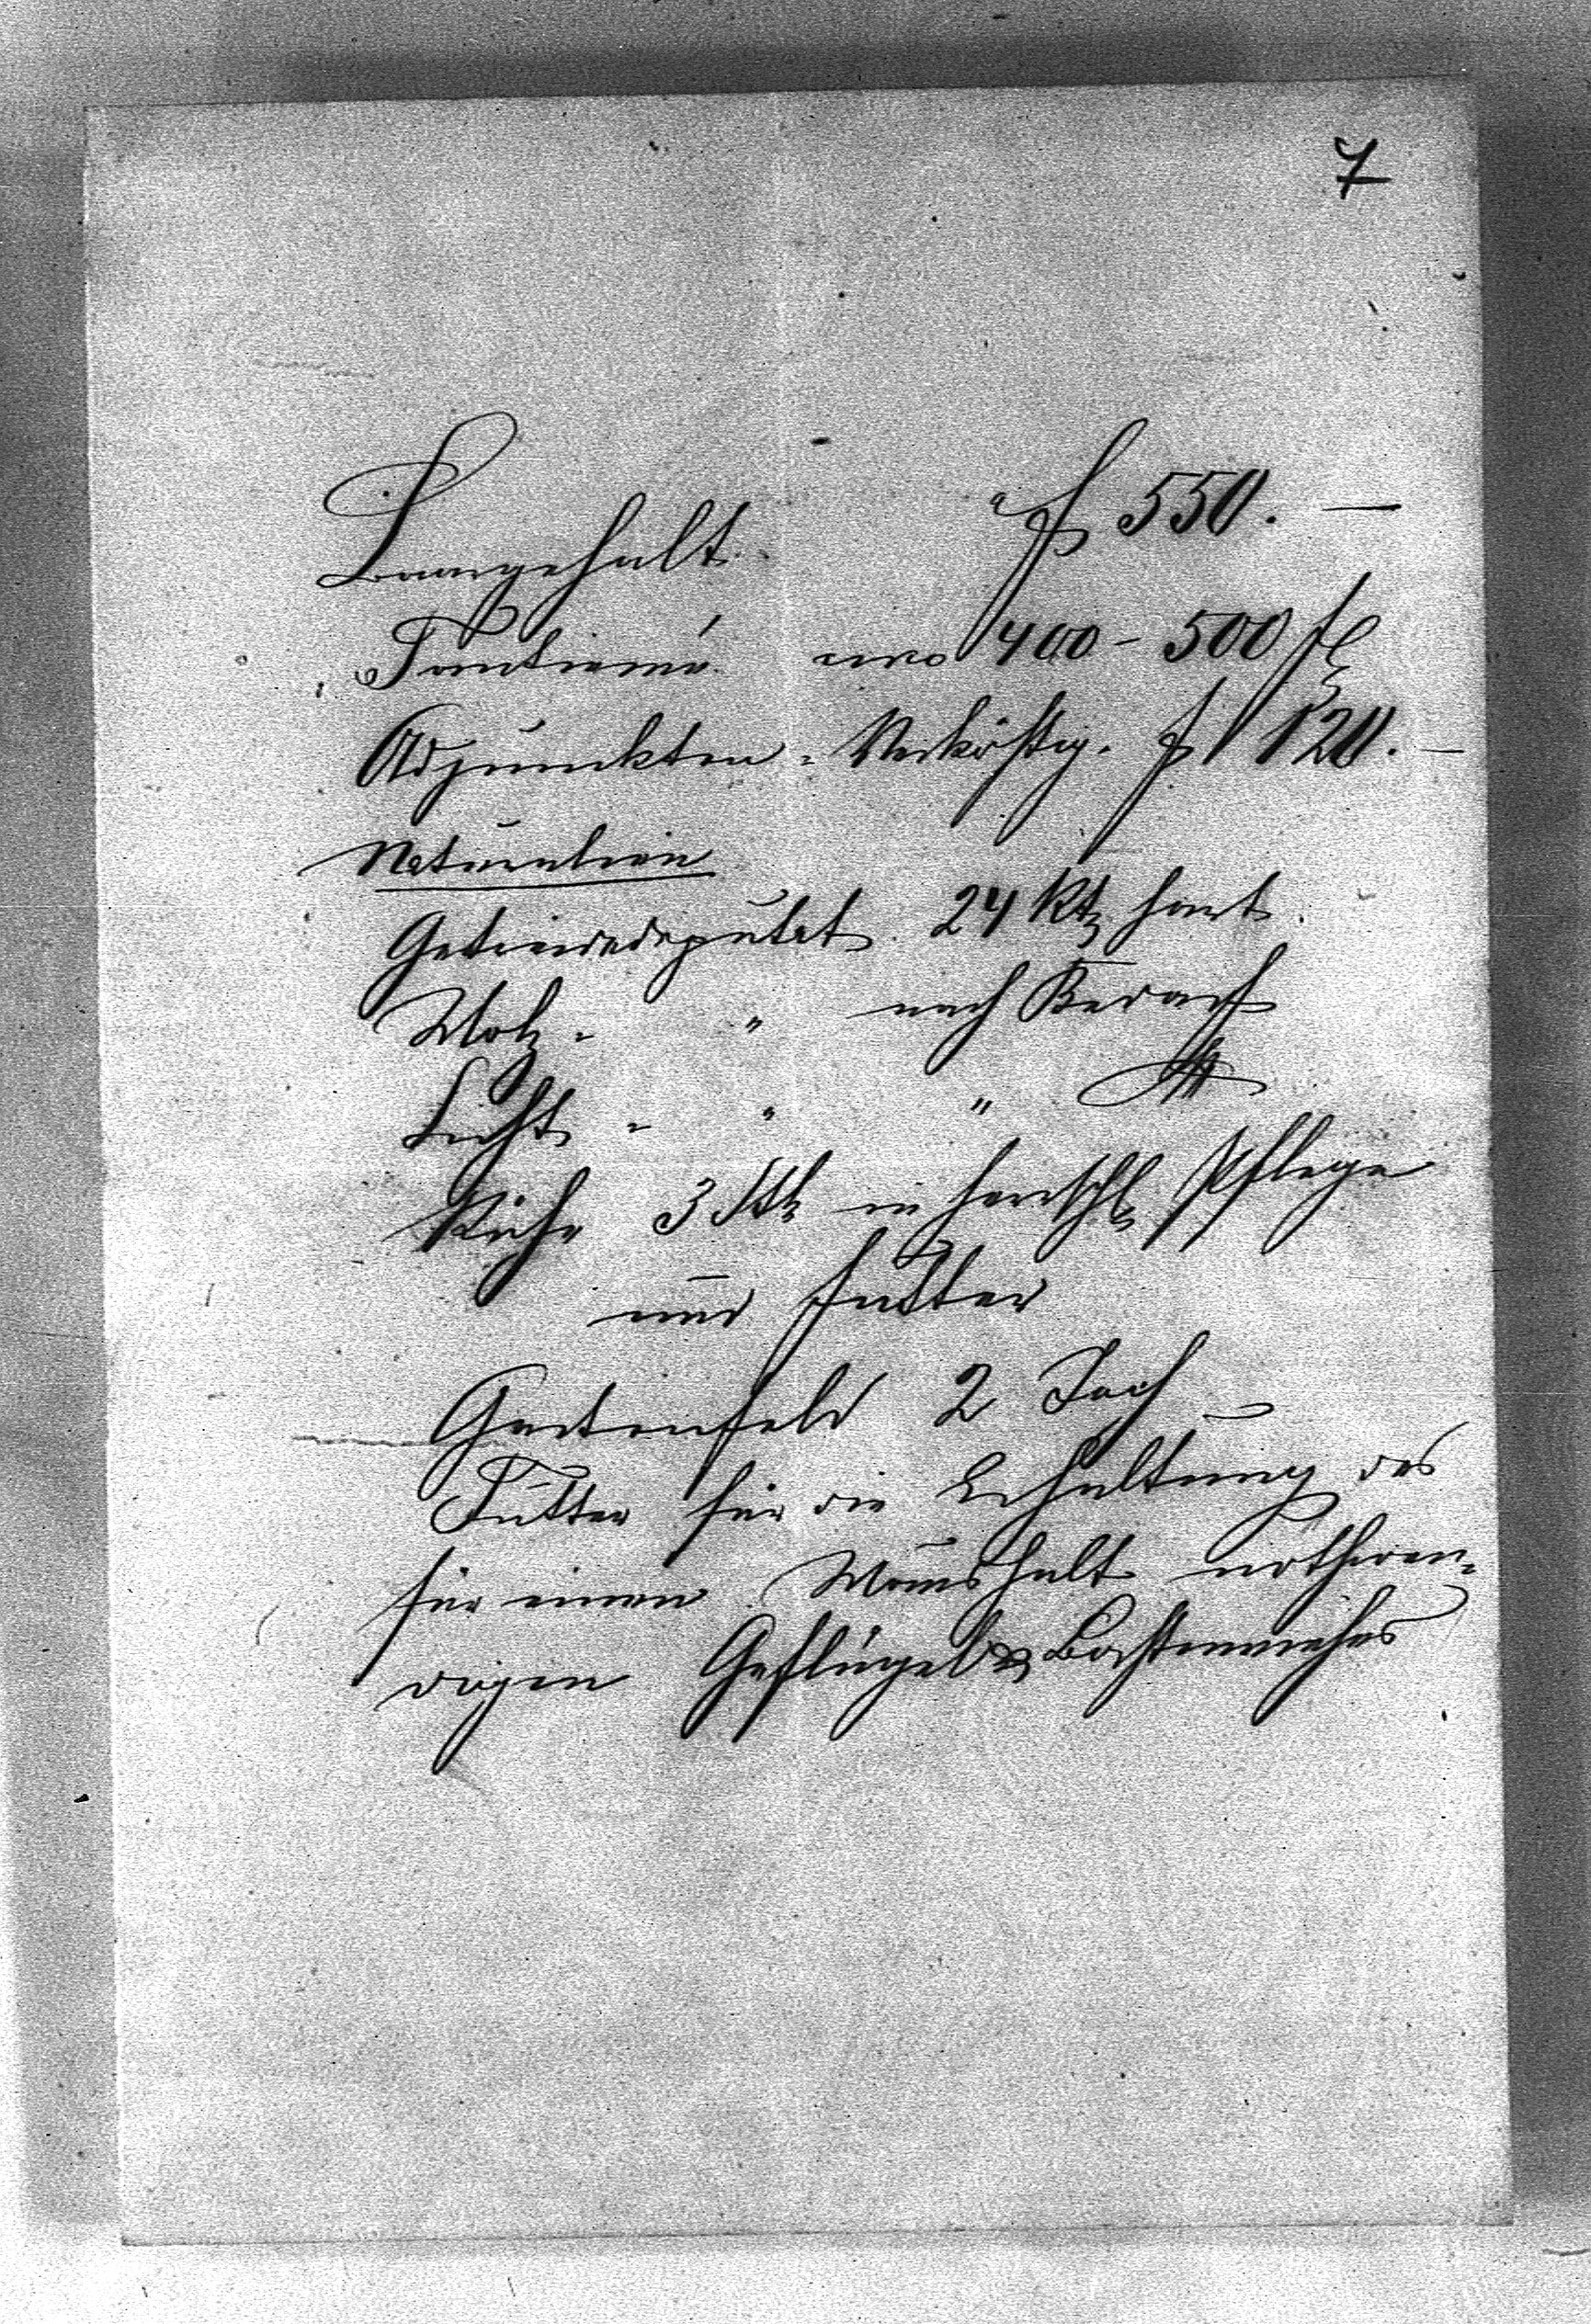 7
Baargehalt f 550. —
Tantiemé circa 400 - 500 fl
Adjunkten - Verköstig. f 120. —
Naturalien
Getreidedeputat. 24 Ktz hart.
Holz - " nach Bedarf
Licht - " "
Kühe 3 Stk in herrschl Pflege
und Futter
Gartenfeld 2 Joch
Futter für die Erhaltung des
für einen Haushalt nothwen-
digen Geflügel & Borstenviehes